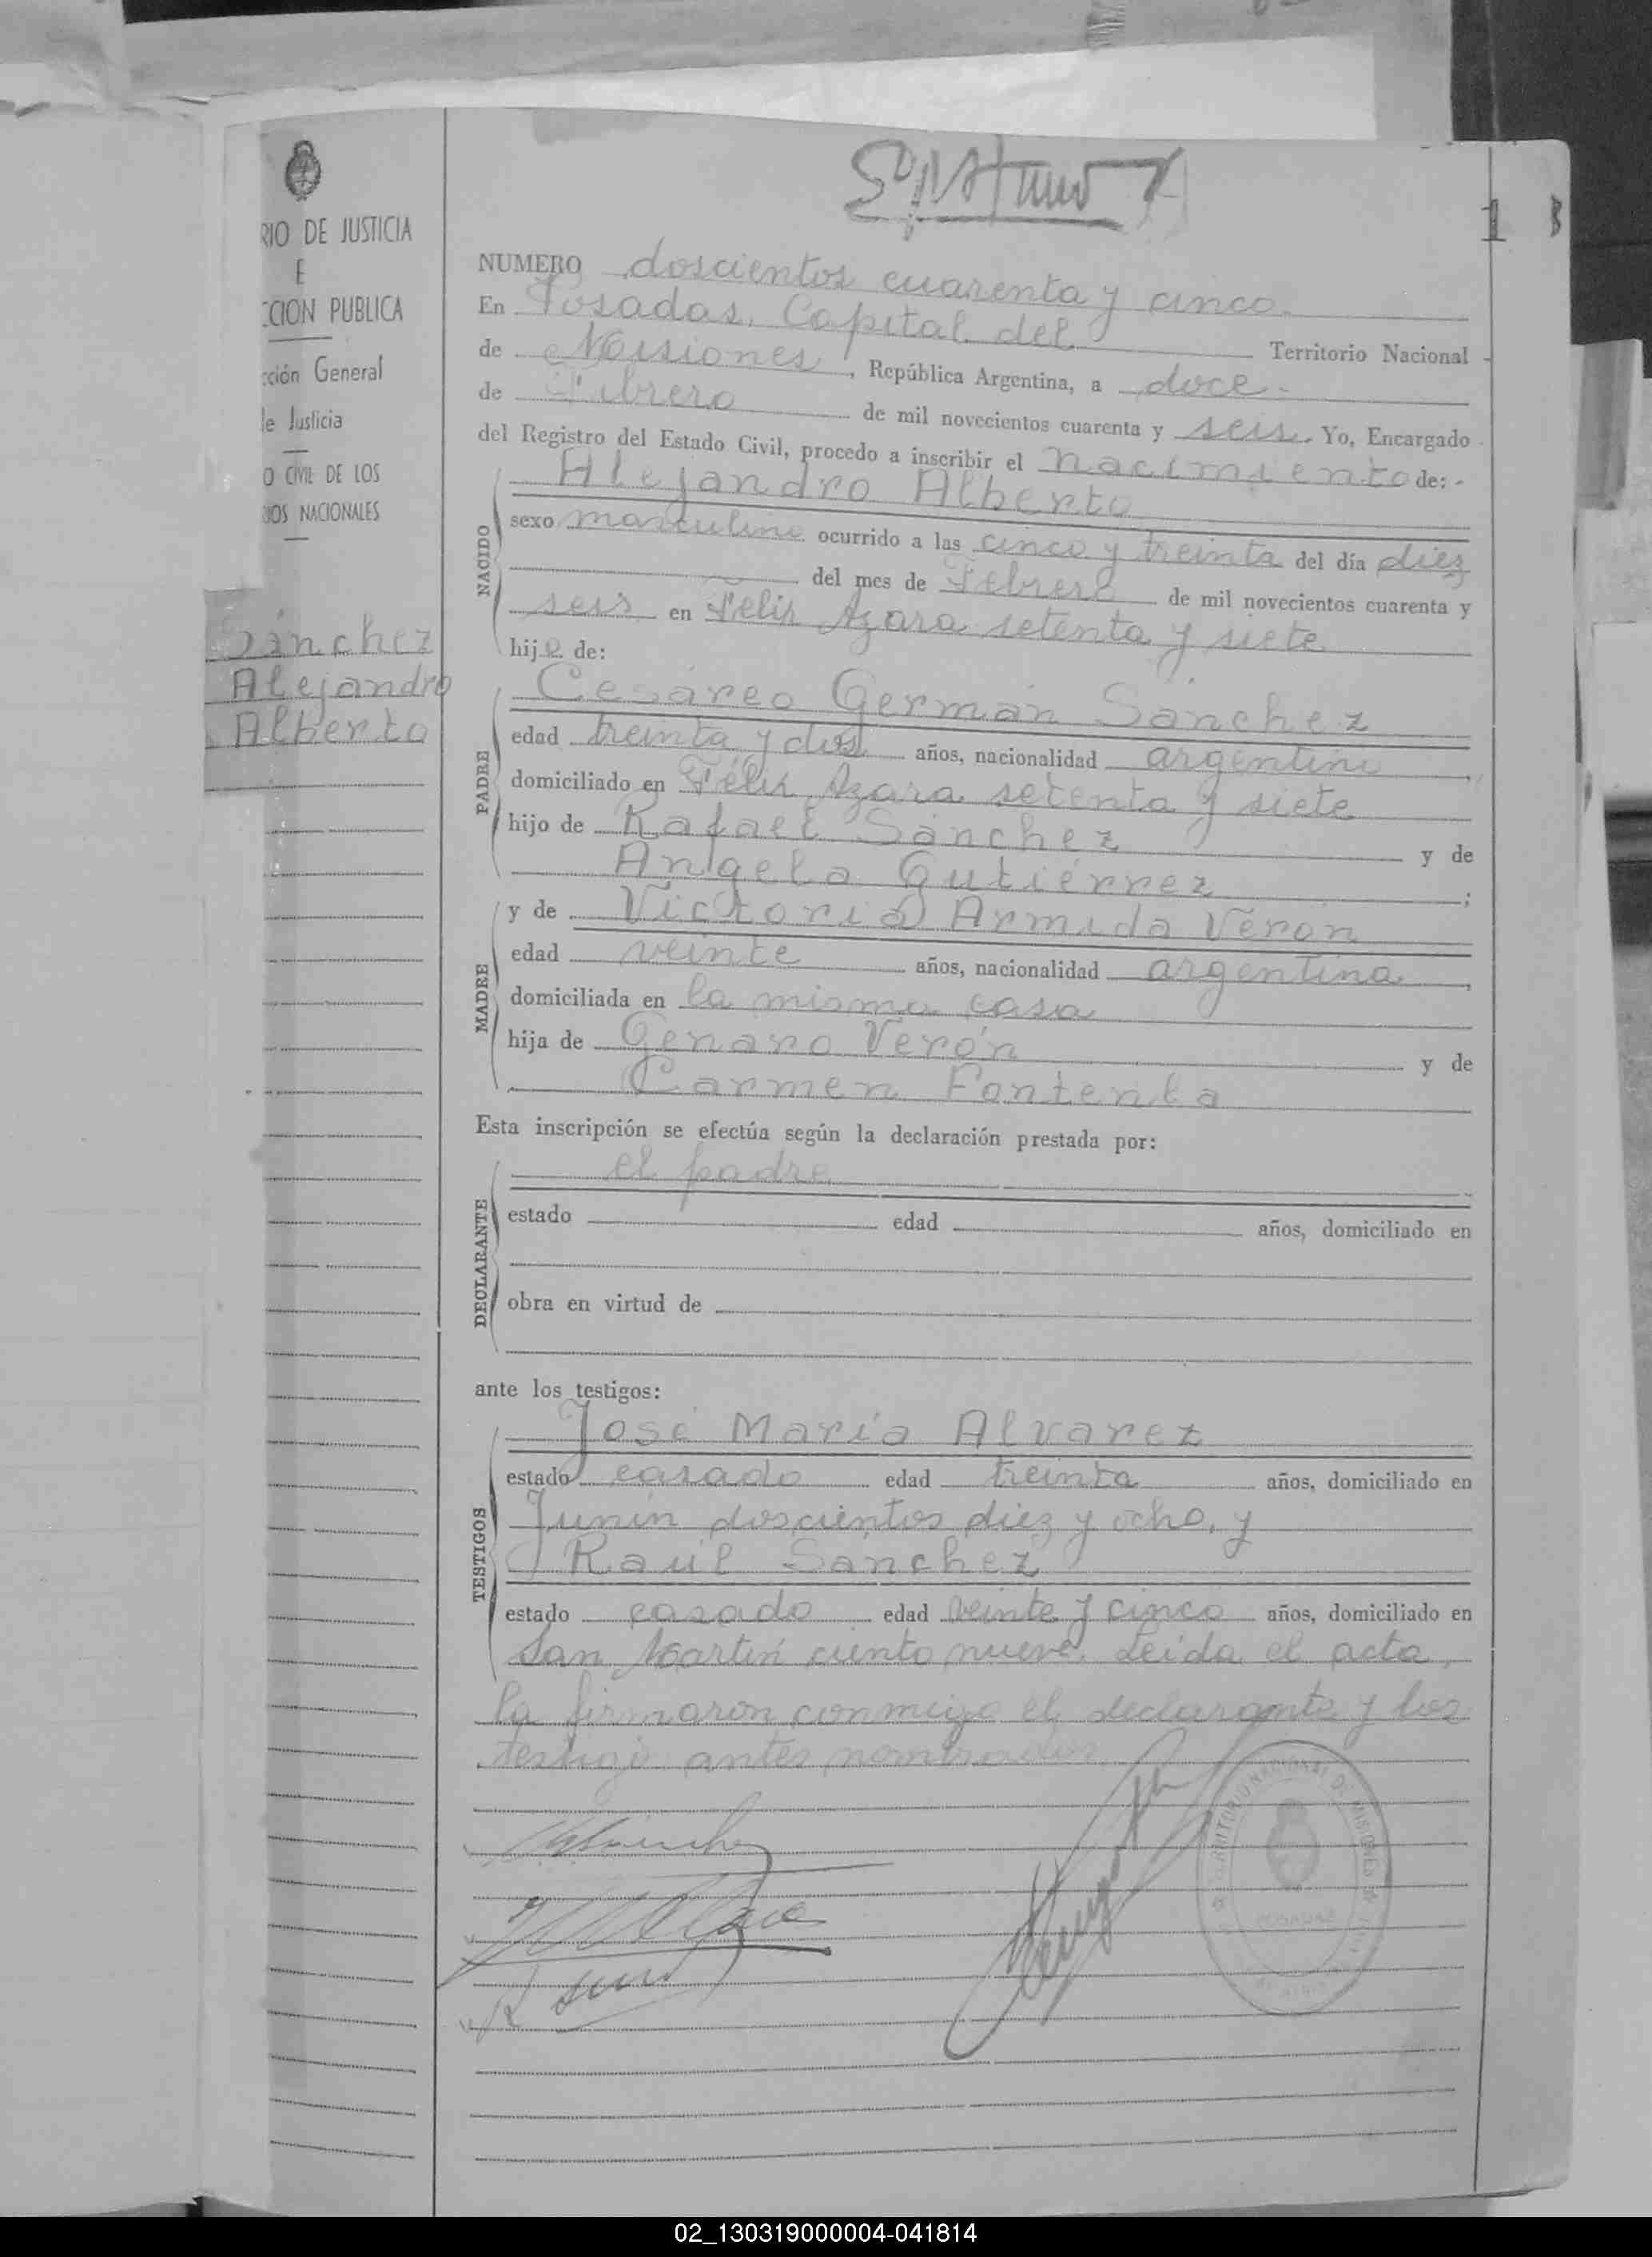 RIO DE JUSTICIA
E
CCION PUBLICA
cción General
le Justicia
O CIVIL DE LOS
RIOS NACIONALES
Sánchez
Alejandro
Alberto
1 3
NUMERO doscientos cuarenta y cinco.
En Posadas, Capital del Territorio Nacional
de Misiones, República Argentina, a doce
de Febrero de mil novecientos cuarenta y seis. Yo, Encargado
del Registro del Estado Civil, procedo a inscribir el nacimiento de:
NACIDO
Alejandro Alberto
sexo masculino ocurrido a las cinco y treinta del día diez
del mes de Febrero de mil novecientos cuarenta y
seis en Félix Azara setenta y siete
hijo de:
PADRE
Cesáreo Germán Sánchez
edad treinta y dos años, nacionalidad argentino,
domiciliado en Félix Azara setenta y siete
hijo de Rafael Sánchez y de
Angela Gutiérrez;
MADRE
y de Victoria Armida Verón
edad veinte años, nacionalidad argentina,
domiciliada en la misma casa
hija de Genaro Verón y de
Carmen Fontenla
Esta inscripción se efectúa según la declaración prestada por:
DECLARANTE
el padre
estado edad años, domiciliado en
obra en virtud de
ante los testigos:
TESTIGOS
José María Alvarez
estado casado edad treinta años, domiciliado en
Junín doscientos diez y ocho, y
Raúl Sánchez
estado casado edad veinte y cinco años, domiciliado en
San Martín ciento nueve. Leída el acta,
la firmaron conmigo el declarante y los
testigos antes nombrados
TERRITORIO NACIONAL DE MISIONES
POSADAS
02_130319000004-041814